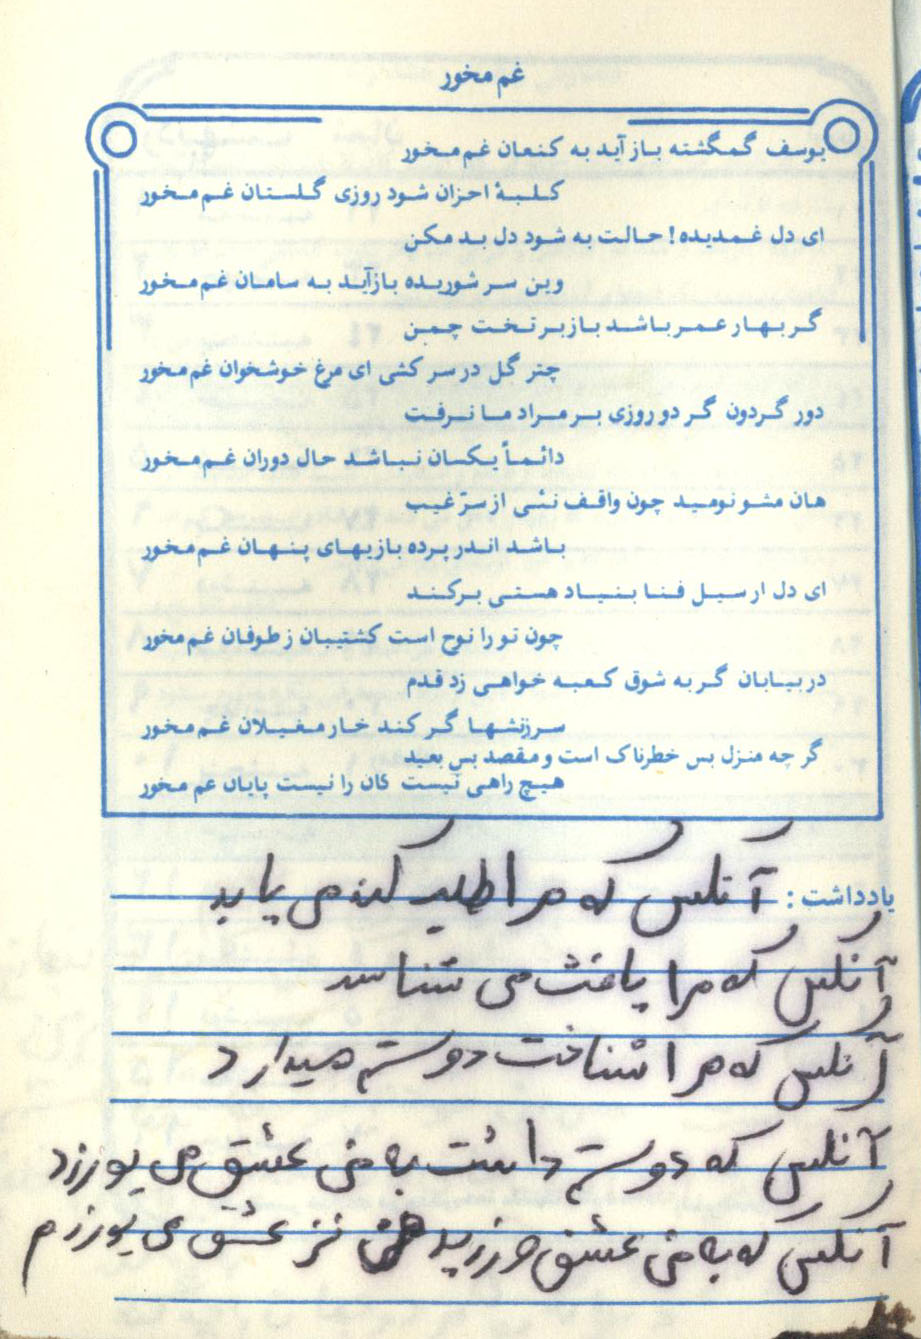 غم مخور
یوسف گمگشته باز آید به کنعان غم مخور
کلبهٔ احزان شود روزی گلستان غم مخور
ای دل غمدیده! حالت به شود دل بد مکن
وین سر شوریده باز آید به سامان غم مخور
گر بهار عمر باشد باز بر تخت چمن
چتر گل در سر کشی ای مرغ خوشخوان غم مخور
دور گردون گر دو روزی بر مراد ما نرفت
دائماً یکسان نباشد حال دوران غم مخور
هان مشو نومید چون واقف نئی از سرّ غیب
باشد اندر پرده بازیهای پنهان غم مخور
ای دل ار سیل فنا بنیاد هستی برکند
چون تو را نوح است کشتیبان ز طوفان غم مخور
در بیابان گر به شوق کعبه خواهی زد قدم
سرزنشها گر کند خار مغیلان غم مخور
گر چه منزل بس خطرناک است و مقصد بس بعید
هیچ راهی نیست کان را نیست پایان غم مخور
یادداشت: آنکس که مرا طلب کند می یابد
آنکس که مرا یافت می شناسد
آنکس که مرا شناخت دوستم میدارد
آنکس که دوستم داشت به من عشق می یورزد
آنکس که به من عشق ورزید من نیز عشق می یورزم